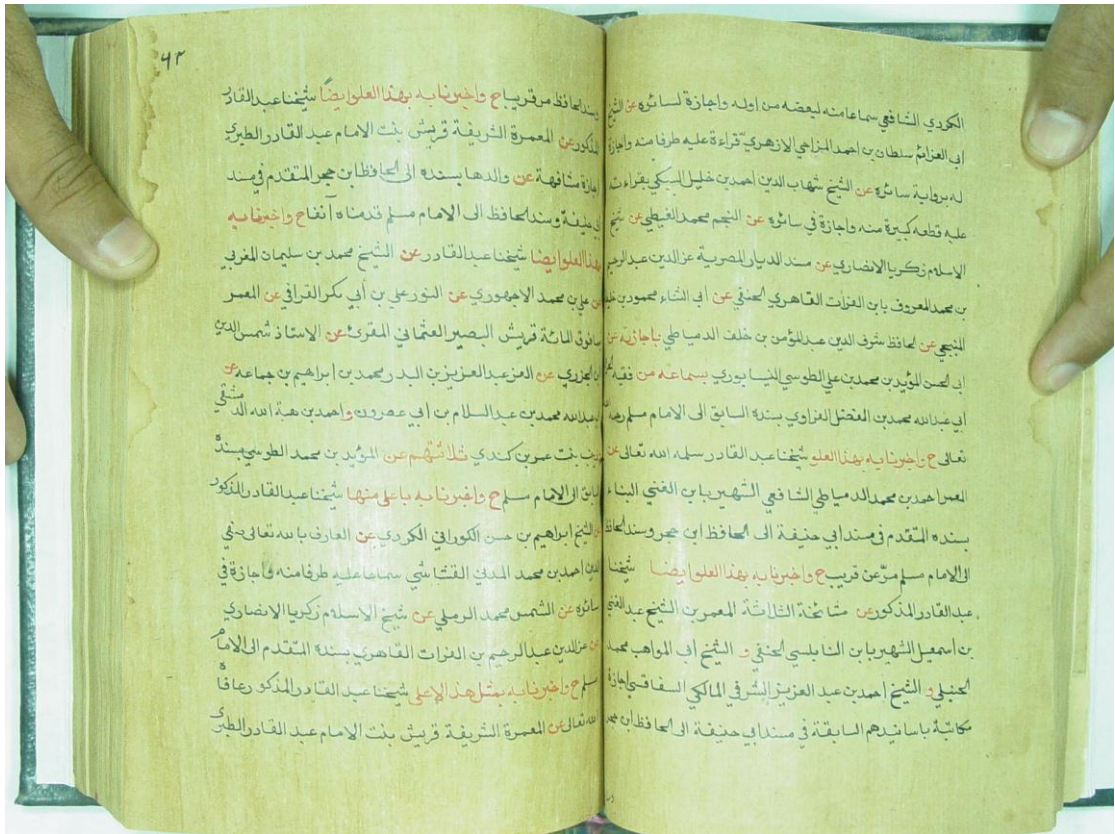 الكردي الشافعي سماعا منه لبعضه من اوله واجازة لسائره عن الشيخ
ابي العزائم سلطان بن احمد المزاحي الازهري قراءة عليه طرفا منه واجازة
له برواية سائره عن الشيخ شهاب الدين احمد بن خليل السبكي بقراءته
عليه قطعه كبيرة منه واجازة في سائره عن النجم محمد الغيطي عن شيخ
الاسلام زكريا الانصاري عن مسند الديار المصرية عز الدين عبد الرحيم
بن محمد المعروف بابن الفرات القاهري الحنفي عن أبي الثناء محمود بن خليفة
المنبجي عن الحافظ شرف الدين عبد المؤمن بن خلف الدمياطي باجازته عن
ابي الحسن المؤيد بن محمد بن علي الطوسي النيسابوري بسماعه من فقيه الحرم
أبي عبدالله محمد بن الفضل الفراوي بسنده السابق الى الامام مسلم رحمه الله
تعالى ح واخبرنا به بهذا العلو شيخنا عبد القادر سلمه الله تعالى عن
المعمر احمد بن محمد الدمياطي الشافعي الشهير بابن الغني البناء
بسنده المتقدم في مسند أبي حنيفة الى الحافظ ابن حجر وسند الحافظ
الى الامام مسلم مرّ عن قريب ح واخبرنا به بهذا العلو ايضا شيخنا
عبد القادر المذكور عن مشائخة الثلاثة المعمر بن الشيخ عبد الغني
بن اسمعيل الشهير بابن النابلسي الحنفي و الشيخ أبي المواهب محمد
الحنبلي و الشيخ احمد بن عبد العزيز البشرفي المالكي السفاقسي اجازة
مكاتبة باسانيدهم السابقة في مسند ابي حنيفة الى الحافظ ابن حجر
٤٢
وسند الحافظ مر قريبا ح واخبرنا به بهذا العلو ايضاً شيخنا عبد القادر
المذكور عن المعمرة الشريفة قريش بنت الامام عبد القادر الطبري
اجازة مشافهة عن والدها بسنده الى الحافظ ابن حجر المتقدم في مسند
ابي حنيفة وسند الحافظ الى الامام مسلم قدمناه آنفا ح واخبرنا به
بهذا العلو ايضا شيخنا عبد القادر عن الشيخ محمد بن سليمان المغربي
عن علي بن محمد الاجهوري عن النور علي بن أبي بكر القرافي عن المعمر
مافوق المائة قريش البصير العثماني المقرئ عن الاستاذ شمس الدين
ابن الجزري عن العز عبد العزيز بن البدر محمد بن ابراهيم بن جماعه عن
ابي عبدالله محمد بن عبد السلام بن أبي عصرون واحمد بن هبة الله الدمشقي
وزينب بنت عمر بن كندي ثلاثتهم عن المؤيد بن محمد الطوسي بسنده
السابق الى الامام مسلم ح واخبرنا به باعلى منها شيخنا عبد القادر المذكور
عن الشيخ ابراهيم بن حسن الكوراني الكردي عن العارف بالله تعالى صفي
الدين احمد بن محمد المدني القشاشي سماعا عليه طرفا منه واجازة في
سائره عن الشمس محمد الرملي عن شيخ الاسلام زكريا الانصاري
عن عز الدين عبد الرحيم بن الفرات القاهري بسنده المتقدم الى الامام
مسلم ح واخبرنا به بمثل هذا الاعلى شيخنا عبد القادر المذكور عافاه
الله تعالى عن المعمرة الشريفة قريش بنت الامام عبد القادر الطبري